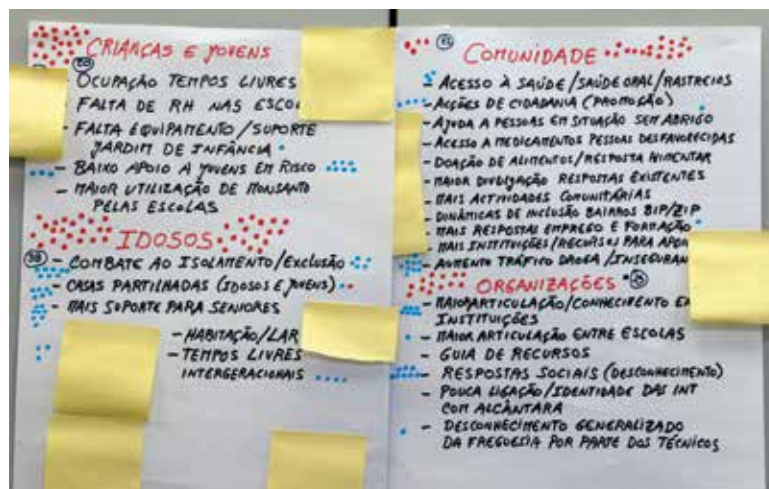 CRIANÇAS E JOVENS
- OCUPAÇÃO TEMPOS LIVRES
- FALTA DE RH NAS ESCO
- FALTA EQUIPAMENTO / SUPORTE
JARDIM DE INFÂNCIA
- BAIXO APOIO A JOVENS EM RISCO
- MAIOR UTILIZAÇÃO DE MONSANTO
PELAS ESCOLAS
IDOSOS
38
- COMBATE AO ISOLAMENTO/EXCLUSÃO
- CASAS PARTILHADAS (IDOSOS E JOVENS)
- MAIS SUPORTE PARA SENIORES
- HABITAÇÃO/LAR
- TEMPOS LIVRES
INTERGERACIONAIS
COMUNIDADE
- ACESSO À SAÚDE/SAÚDE ORAL/RASTREIOS
- ACÇÕES DE CIDADANIA (PROMOÇÃO)
- AJUDA A PESSOAS EM SITUAÇÃO SEM ABRIGO
- ACESSO A MEDICAMENTOS PESSOAS DESFAVORECIDAS
- DOAÇÃO DE ALIMENTOS/RESPOSTA ALIMENTAR
- MAIOR DIVULGAÇÃO RESPOSTAS EXISTENTES
- MAIS ACTIVIDADES COMUNITÁRIAS
- DINÂMICAS DE INCLUSÃO BAIRROS BIP/ZIP
- MAIS RESPOSTAS EMPREGO E FORMAÇÃO
- MAIS INSTITUIÇÕES/RECURSOS PARA APOI
- AUMENTO TRÁFICO DROGA/INSEGURAN
ORGANIZAÇÕES
- MAIOR ARTICULAÇÃO/CONHECIMENTO EN
INSTITUIÇÕES
- MAIOR ARTICULAÇÃO ENTRE ESCOLAS
- GUIA DE RECURSOS
- RESPOSTAS SOCIAIS (DESCONHECIMENTO)
- POUCA LIGAÇÃO/IDENTIDADE DAS INT
COM ALCÂNTARA
- DESCONHECIMENTO GENERALIZADO
DA FREGUESIA POR PARTE DOS TÉCNICOS